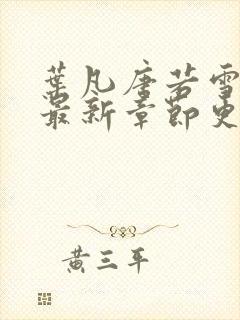 葉凡唐若雪
最新章節更
黃三平